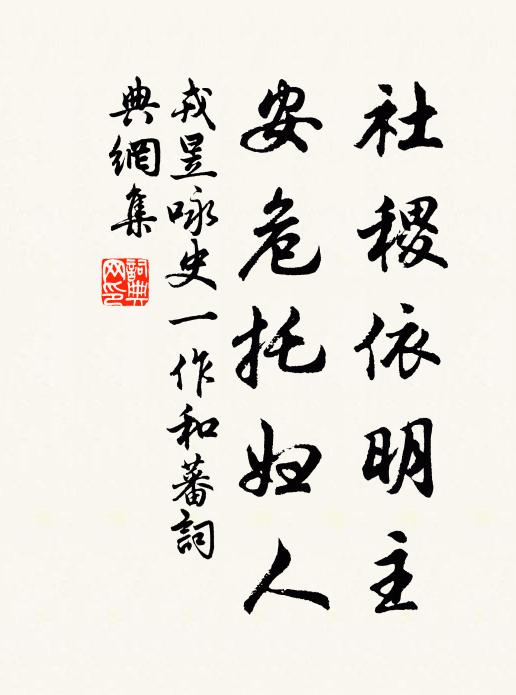 社稷依明主
安危托妇人
戎昱咏史一作和蕃詞
典網集
詞典
网印